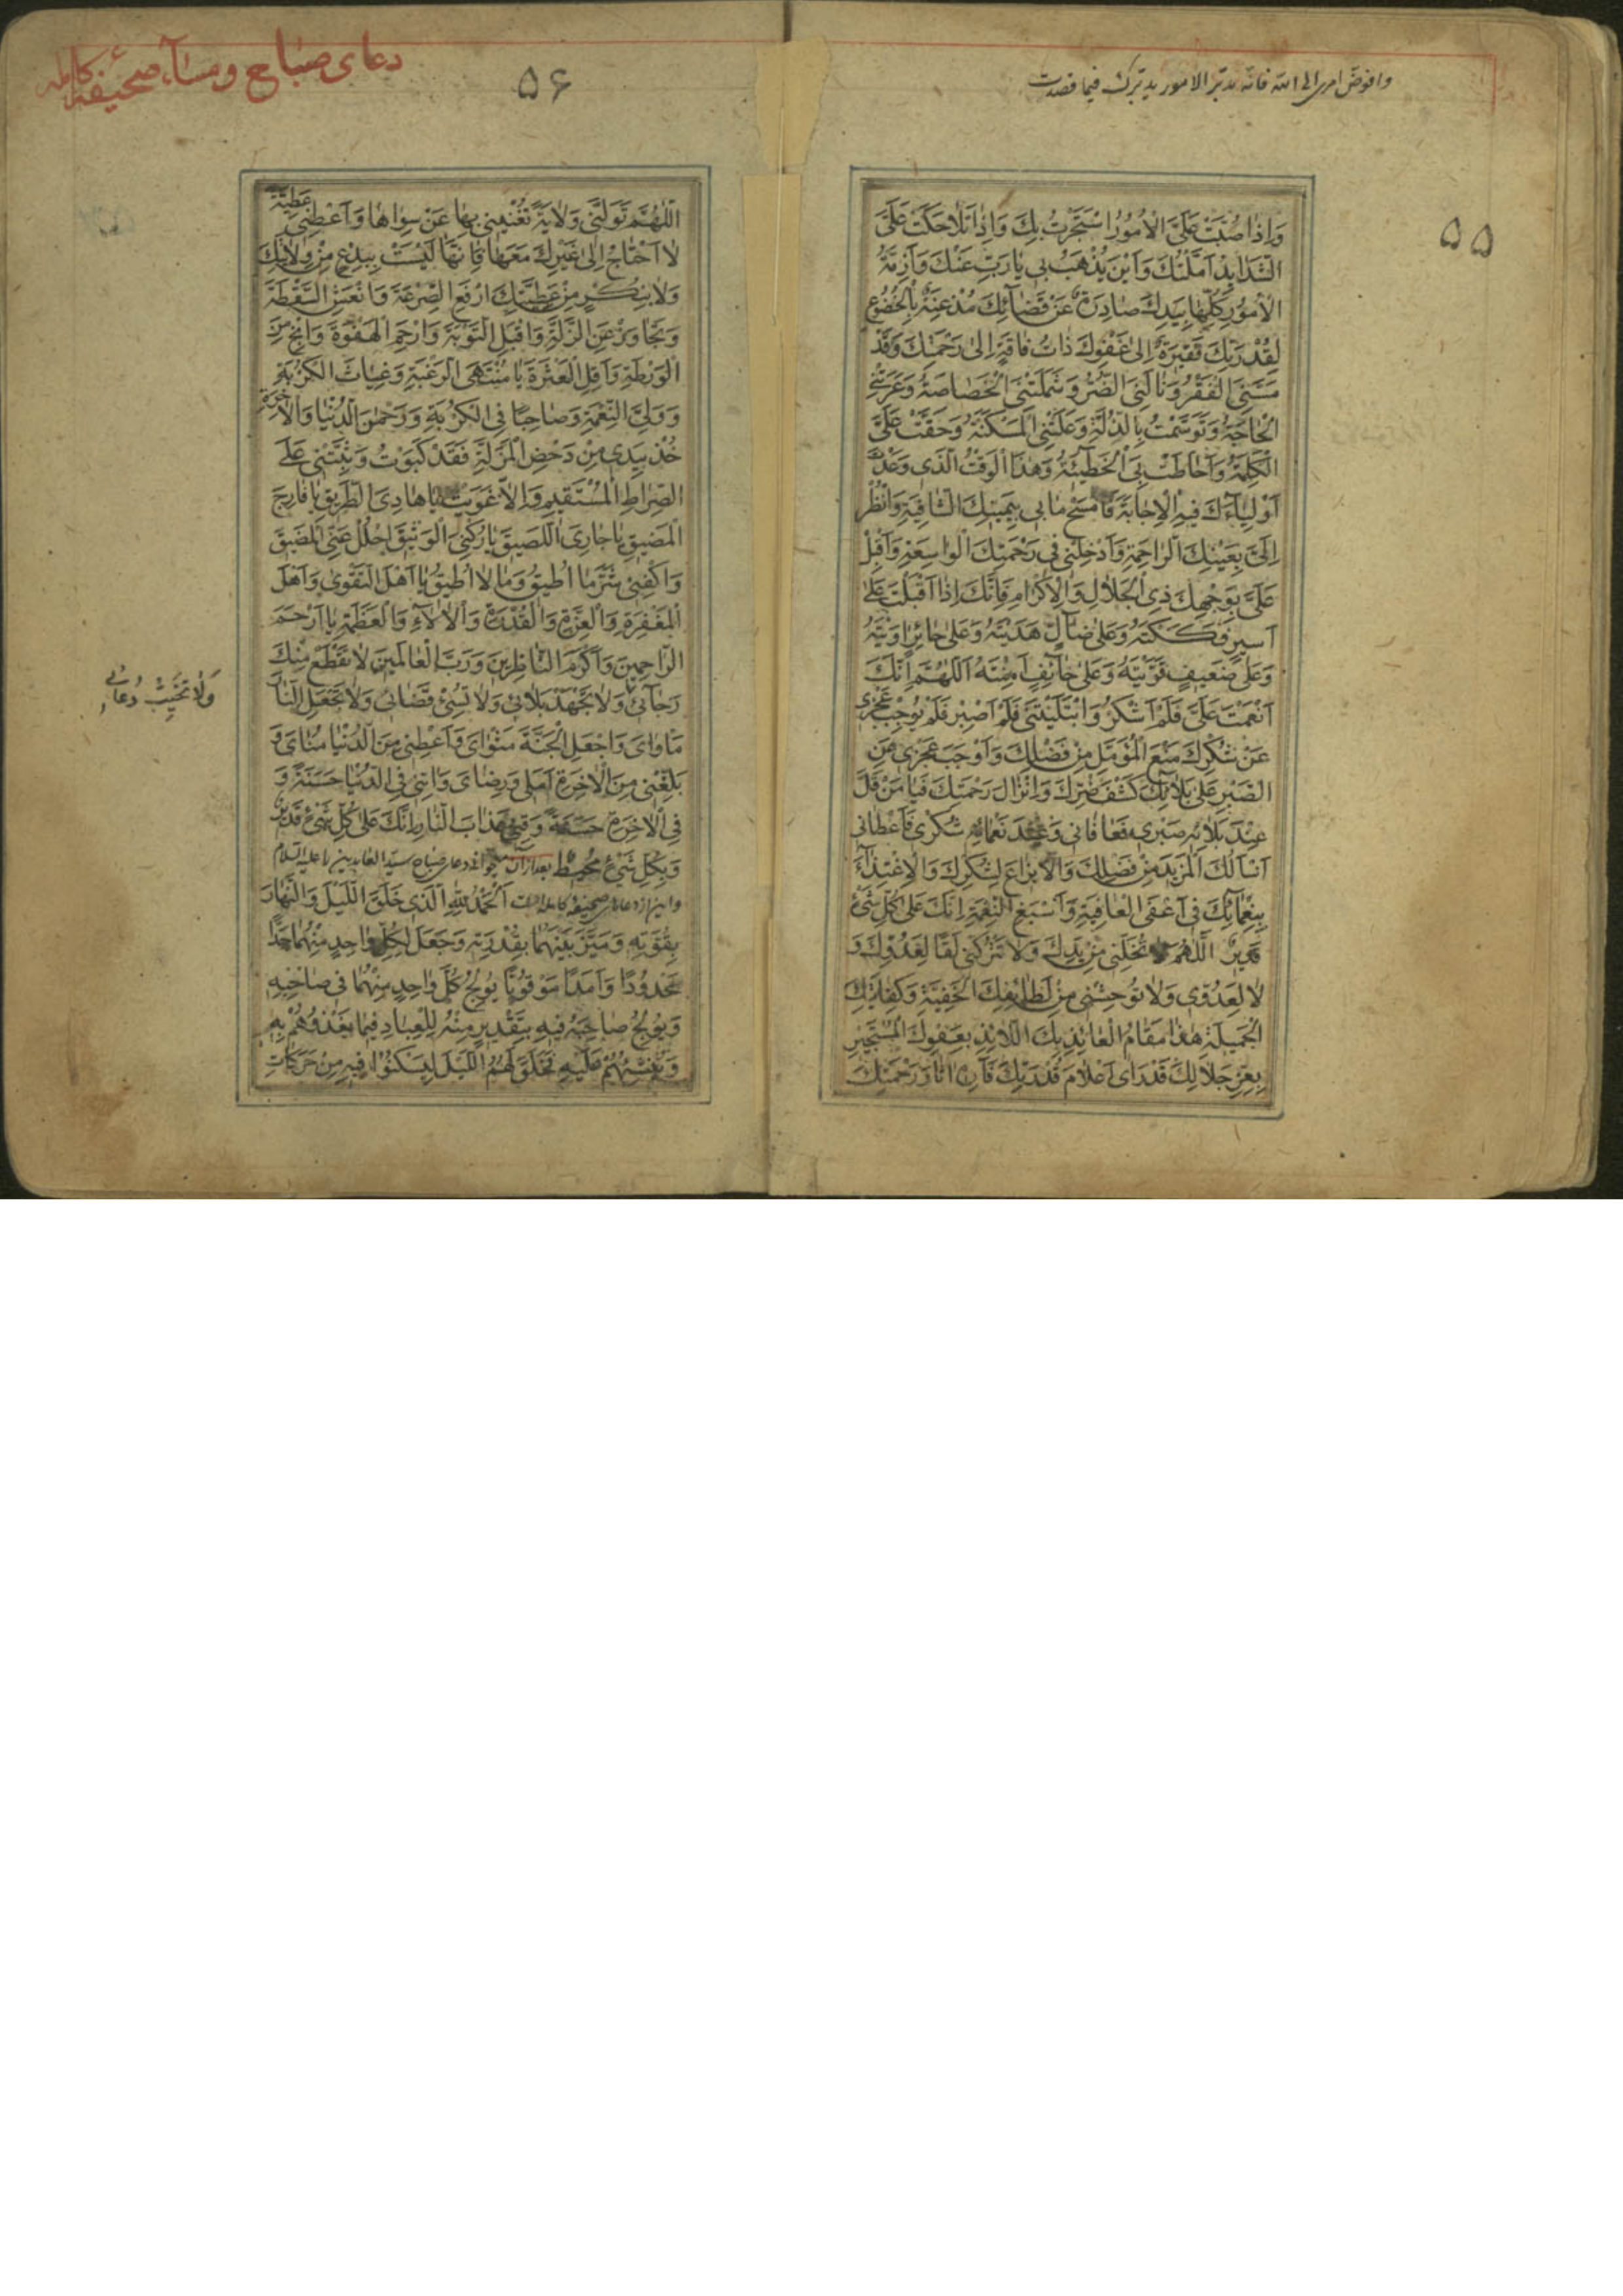 وافوض امری الی الله فانه یدبر الامور یدبرک فیما قصدت
۵۵
وَاِذٰا صُبَّتْ عَلَیَّ الْاُمُوُرُ اسْتَجَرْتُ بِكَ وَاِذٰا تَلٰاحَكَتْ عَلَیَّ
الشَّدٰایِدُ اَمَّلْتُكَ وَاَیْنَ یُذْهَبُ بی یٰا رَبِّ عَنْكَ وَاَزِمَّةُ
الْاُمُوُرِ كُلِّهٰا بِیَدِكَ صٰادِرَةٌ عَنْ قَضٰآئِكَ مُذْعِنَةٌ بِالْخُضُوُعِ
لِقُدْرَتِكَ فَقیٖرَةٌ اِلیٰ عَفْوِكَ ذٰاتُ فٰاقَةٍ اِلیٰ رَحْمَتِكَ وَقَدْ
مَسَّنِیَ الْفَقْرُ وَنٰالَنِیَ الضُّرُّ وَشَمَلَتْنِیَ الْخَصٰاصَةُ وَعَرَتْنِی
الْحٰاجَةُ وَتَوَسَّمْتُ بِالذِّلَّةِ وَعَلَتْنِی الْمَسْكَنَةُ وَحَقَّتْ عَلَیَّ
الْكَلِمَةُ وَاَحٰاطَتْ بِیَ الْخَطٖیئَةُ وَهٰذَا الْوَقْتُ الَّذی وَعَدْتَ
اَوْلِیٰآءَكَ فیٖهِ الْاِجٰابَةَ فَامْسَحْ مٰا بی بِیَمیٖنِكَ الشّٰافِیَةِ وَانْظُرْ
اِلَیَّ بِعَیْنِكَ الرّٰاحِمَةِ وَاَدْخِلْنی فی رَحْمَتِكَ الْوٰاسِعَةِ وَاَقْبِلْ
عَلَیَّ بِوَجْهِكَ ذِی الْجَلٰالِ وَالْاِكْرٰامِ فَاِنَّكَ اِذٰا اَقْبَلْتَ عَلیٰ
اَسیٖرٍ فَكَكْتَهُ وَعَلیٰ ضٰآلٍّ هَدَیْتَهُ وَعَلیٰ حٰائِرٍ اٰوَیْتَهُ
وَعَلیٰ ضَعیٖفٍ قَوَّیْتَهُ وَعَلیٰ خٰآئِفٍ اٰمَنْتَهُ اَللّٰهُمَّ اِنَّكَ
اَنْعَمْتَ عَلَیَّ فَلَمْ اَشْكُرْ وَابْتَلَیْتَنی فَلَمْ اَصْبِرْ فَلَمْ یُوُجِبْ عَجْزی
عَنْ شُكْرِكَ مَنْعَ الْمُؤَمَّلِ مِنْ فَضْلِكَ وَاَوْجَبَ عَجْزی مِنَ
الصَّبْرِ عَلیٰ بَلٰآئِكَ كَشْفَ ضُرِّكَ وَاِنْزٰالَ رَحْمَتِكَ فَیٰا مَنْ قَلَّ
عِنْدَ بَلٰائِهِ صَبْری فَعٰافٰانی وَعِنْدَ نَعْمٰائِهِ شُكْری فَاَعْطٰانی
اَسْاَلُكَ الْمَزیٖدَ مِنْ فَضْلِكَ وَالْایزٰاعَ لِشُكْرِكَ وَالْاِعْتِدٰادَ
بِنَعْمٰآئِكَ فی اَعْفَی الْعٰافِیَةِ وَاَسْبَغِ النِّعْمَةِ اِنَّكَ عَلیٰ كُلِّ شَیْءٍ
قَدیٖرٌ اَللّٰهُمَّ لٰا تُخْلِنی مِنْ یَدِكَ وَلٰا تَتْرُكْنی لَقًا لِعَدُوِّكَ وَ
لٰا لِعَدُوّی وَلٰا تُوُحِشْنی مِنْ لَطٰایِفِكَ الْخَفِیَّةِ وَكِفٰایَتِكَ
الْجَمیٖلَةِ هٰذٰا مَقٰامُ الْعٰائِذِ بِكَ اللّٰائِذِ بِعَفْوِكَ الْمُسْتَجیٖرِ
بِعِزِّ جَلٰالِكَ قَدْ رَاٰی اَعْلٰامَ قُدْرَتِكَ فَاَرِهِ اٰثٰارَ رَحْمَتِكَ
دعای صباح و مساء صحیفهٔ کامله
۵۶
اَللّٰهُمَّ تَوَلَّنی وَلٰایَةً تُغْنیٖنی بِهٰا عَنْ سِوٰاهٰا وَاَعْطِنی عَطِیَّةً
لٰا اَحْتٰاجُ اِلیٰ غَیْرِكَ مَعَهٰا فَاِنَّهٰا لَیْسَتْ بِبِدْعٍ مِنْ وِلٰایَتِكَ
وَلٰا بِنُكْرٍ مِنْ عَطِیَّتِكَ اِرْفَعِ الصَّرْعَةَ وَانْعَشِ السَّقْطَةَ
وَتَجٰاوَزْ عَنِ الزَّلَّةِ وَاقْبَلِ التَّوْبَةَ وَارْحَمِ الْهَفْوَةَ وَانْجِ مِنَ
الْوَرْطَةِ وَاَقِلِ الْعَثْرَةَ یٰا مُنْتَهَی الرَّغْبَةِ وَغِیٰاثَ الْكُرْبَةِ
وَوَلِیَّ النِّعْمَةِ وَصٰاحِبًا فِی الْكُرْبَةِ وَرَحْمٰنَ الدُّنْیٰا وَالْاٰخِرَةِ
خُذْ بِیَدی مِنْ دَحْضِ الْمَزَلَّةِ فَقَدْ كَبَوْتُ وَثَبِّتْنی عَلَی
الصِّرٰاطِ الْمُسْتَقیٖمِ وَاِلّٰا غَوَیْتُ یٰا هٰادِیَ الطَّریٖقِ یٰا فٰارِجَ
الْمَضیٖقِ یٰا جٰارِیَ اللَّصیٖقَ یٰا رُكْنِیَ الْوَثیٖقَ اُحْلُلْ عَنِّی الْمَضیٖقَ
وَاكْفِنی شَرَّ مٰا اُطیٖقُ وَمٰا لٰا اُطیٖقُ یٰا اَهْلَ التَّقْوٰی وَاَهْلَ
الْمَغْفِرَةِ وَالْعِزَّةِ وَالْقُدْرَةِ وَالْاٰلٰآءِ وَالْعَظَمَةِ یٰا اَرْحَمَ
الرّٰاحِمیٖنَ وَاَكْرَمَ النّٰاظِریٖنَ وَرَبَّ الْعٰالَمیٖنَ لٰا تَقْطَعْ مِنْكَ
رَجٰآئی وَلٰا تَجْهَدْ بَلٰائی وَلٰا تُسِئْ قَضٰائی وَلٰا تَجْعَلِ النّٰارَ
وَلٰا تُخَیِّبْ دُعٰائی
مَاْوٰایَ وَاجْعَلِ الْجَنَّةَ مَثْوٰایَ وَاَعْطِنی مِنَ الدُّنْیٰا مُنٰایَ وَ
بَلِّغْنی مِنَ الْاٰخِرَةِ اَمَلی وَرِضٰایَ وَاٰتِنی فِی الدُّنْیٰا حَسَنَةً وَ
فِی الْاٰخِرَةِ حَسَنَةً وَقِنی عَذٰابَ النّٰارِ اِنَّكَ عَلیٰ كُلِّ شَیْءٍ قَدیٖرٌ
وَبِكُلِّ شَیْءٍ مُحیٖطٌ بعد از آن بخواند دعای صباح سید العابدین را علیه السلام
و این از دعاهای صحیفه کامله است اَلْحَمْدُ لِلّٰهِ الَّذی خَلَقَ اللَّیْلَ وَالنَّهٰارَ
بِقُوَّتِهِ وَمَیَّزَ بَیْنَهُمٰا بِقُدْرَتِهِ وَجَعَلَ لِكُلِّ وٰاحِدٍ مِنْهُمٰا حَدًّا
مَحْدُوُدًا وَاَمَدًا مَوْقُوُتًا یُوُلِجُ كُلَّ وٰاحِدٍ مِنْهُمٰا فی صٰاحِبِهِ
وَیُوُلِجُ صٰاحِبَهُ فیٖهِ بِتَقْدیٖرٍ مِنْهُ لِلْعِبٰادِ فیٖمٰا یَغْذُوُهُمْ بِهِ
وَیُنْشِئُهُمْ عَلَیْهِ فَخَلَقَ لَهُمُ اللَّیْلَ لِیَسْكُنُوُا فیٖهِ مِنْ حَرَكٰاتِ